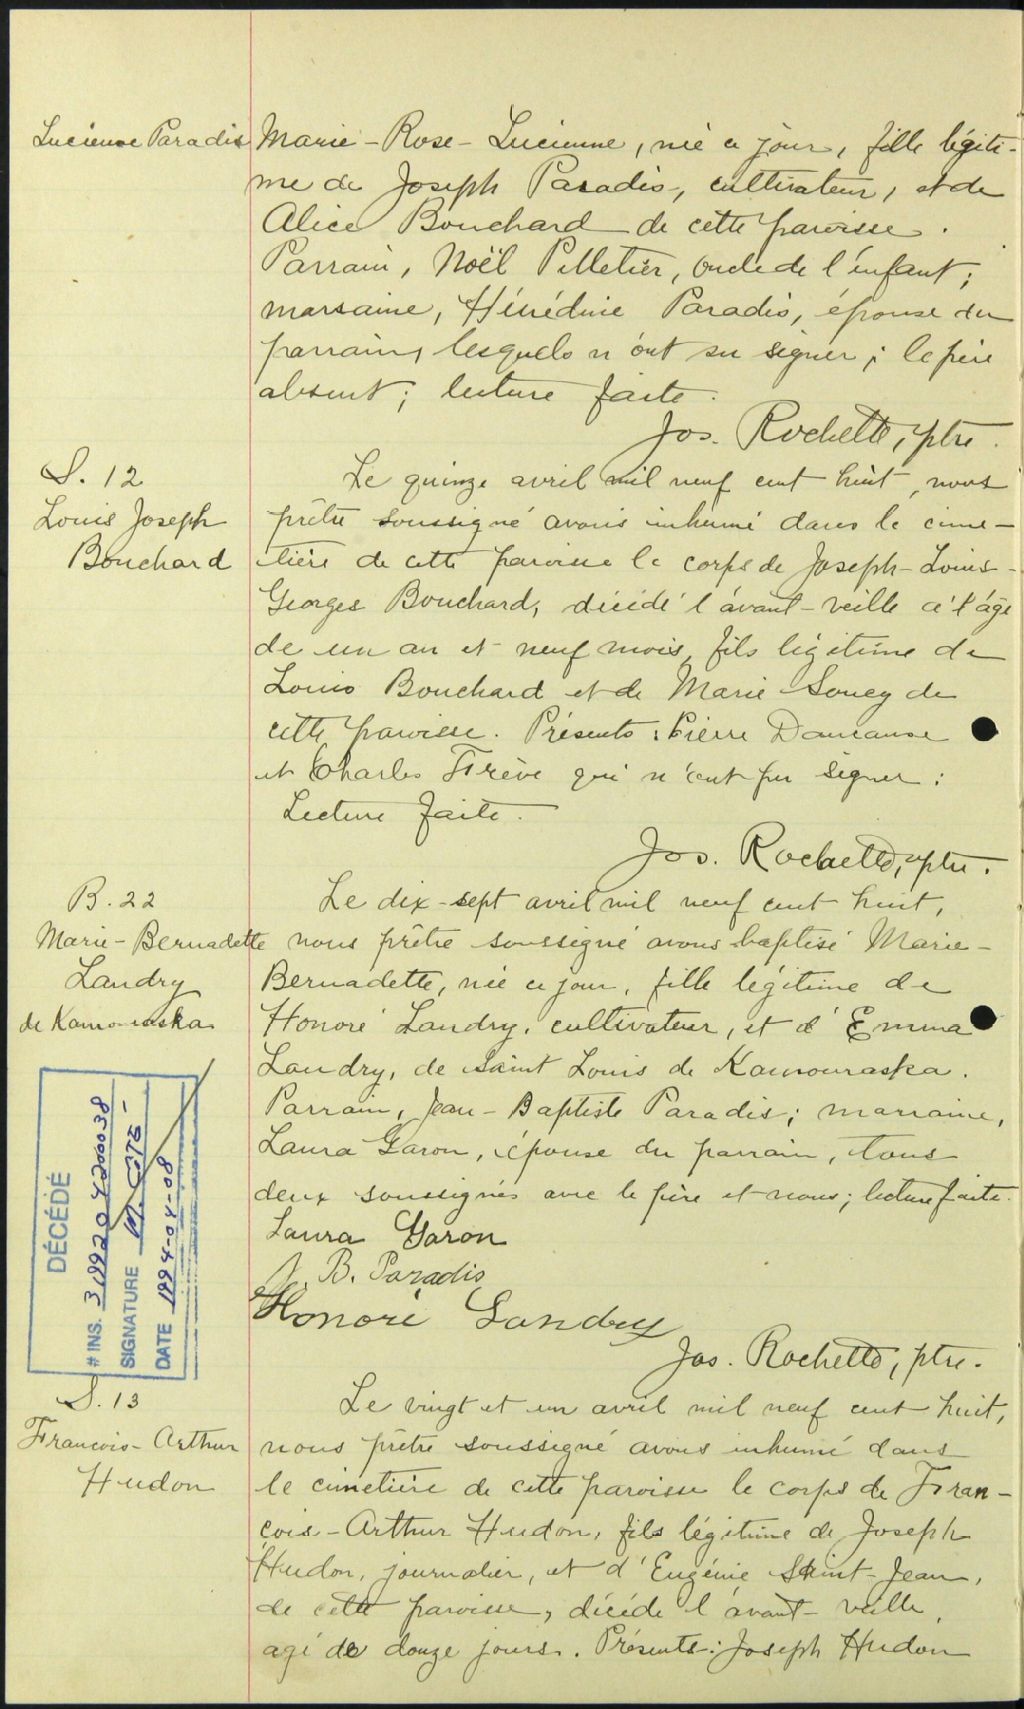 Lucienne Paradis
Marie-Rose-Lucienne, née ce jour, fille légiti-
me de Joseph Paradis, cultivateur, et de
Alice Bouchard de cette paroisse.
Parrain, Noël Pelletier, oncle de l'enfant;
marraine, Hénédine Paradis, épouse du
parrain, lesquels n'ont su signer; le père
absent; lecture faite.
Jos. Rochette, ptre.
S. 12
Louis Joseph
Bouchard
Le quinze avril mil neuf cent huit, nous
prêtre soussigné avons inhumé dans le cime-
tière de cette paroisse le corps de Joseph-Louis-
Georges Bouchard, décédé l'avant-veille à l'âge
de un an et neuf mois, fils légitime de
Louis Bouchard et de Marie Soucy de
cette paroisse. Présents: Pierre
et Charles Frève qui n'ont pu signer:
Lecture faite.
Jos. Rochette, ptre.
B. 22
Marie-Bernadette
Landry
de Kamouraska
Le dix-sept avril mil neuf cent huit,
nous prêtre soussigné avons baptisé Marie-
Bernadette, née ce jour, fille légitime de
Honoré Landry, cultivateur, et d'Emma
Landry, de Saint Louis de Kamouraska.
Parrain, Jean-Baptiste Paradis; marraine,
Laura Garon, épouse du parrain, tous
deux soussignés avec le père et nous; lecture faite.
Laura Garon
J. B. Paradis
Honoré Landry
Jos. Rochette, ptre.
DÉCÉDÉ
# INS.
SIGNATURE M. Côté
DATE 1994-04-08
S. 13
François-Arthur
Hudon
Le vingt et un avril mil neuf cent huit,
nous prêtre soussigné avons inhumé dans
le cimetière de cette paroisse le corps de Fran-
çois-Arthur Hudon, fils légitime de Joseph
Hudon, journalier, et d'Eugénie Saint-Jean,
de cette paroisse, décédé l'avant-veille,
agé de douze jours. Présents: Joseph Hudon